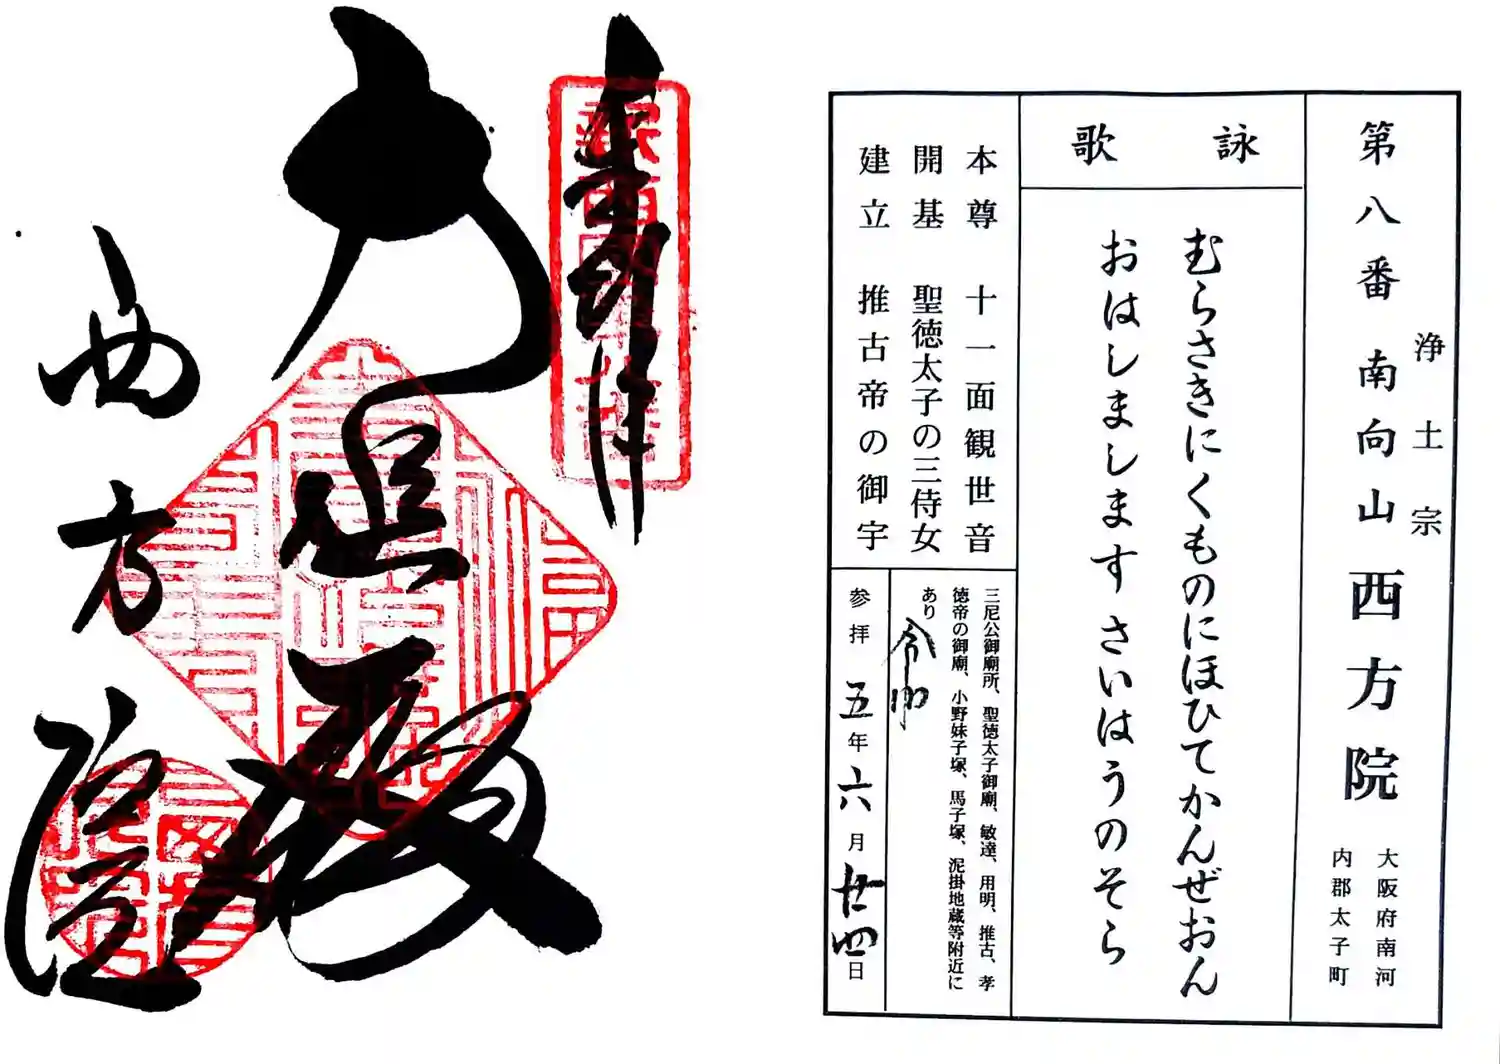 第八番 南向山 西方院
浄土宗
大阪府南河
内郡太子町
詠歌
むらさきにくものにほひてかんぜおん
おはしましますさいはうのそら
本尊 十一面観世音
開基 聖徳太子の三侍女
建立 推古帝の御宇
三尼公御廟所、聖徳太子御廟、敏達、用明、推古、孝
徳帝の御廟、小野妹子塚、馬子塚、泥掛地蔵等附近に
あり
令和
参拝 五年六月廿四日
奉拝
大悲殿
西方院